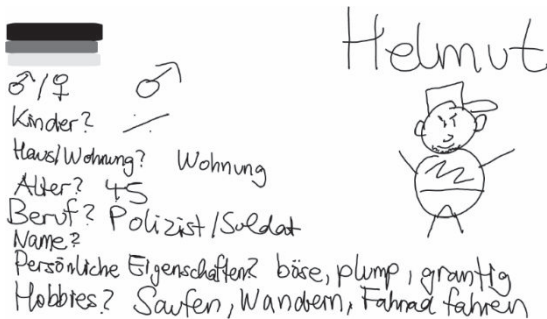 Helmut
♂/♀ ♂
Kinder? ./.
Haus/Wohnung? Wohnung
Alter? 45
Beruf? Polizist/Soldat
Name?
Persönliche Eigenschaften? böse, plump, grantig
Hobbies? Saufen, Wandern, Fahrad fahren